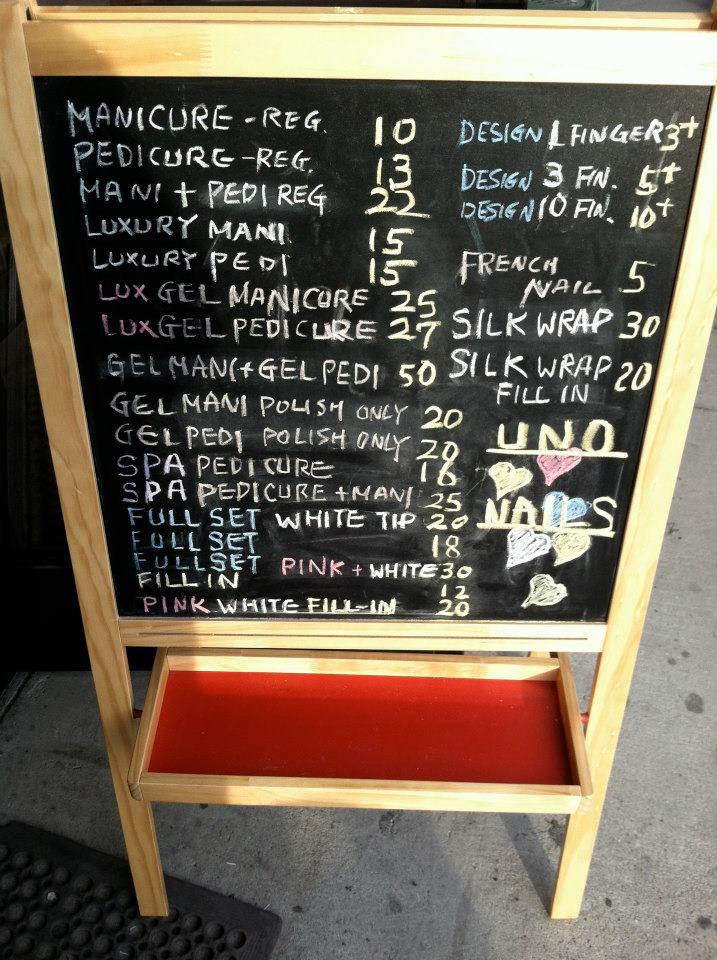 MANICURE - REG. 10
PEDICURE - REG. 13
MANI + PEDI REG 22
LUXURY MANI 15
LUXURY PEDI 15
LUX GEL MANICURE 25
LUX GEL PEDICURE 27
GEL MANI + GEL PEDI 50
GEL MANI POLISH ONLY 20
GEL PEDI POLISH ONLY 20
SPA PEDICURE 18
SPA PEDICURE + MANI 25
FULL SET WHITE TIP 20
FULL SET 18
FULL SET PINK + WHITE 30
FILL IN 12
PINK WHITE FILL-IN 20
DESIGN 1 FINGER 3+
DESIGN 3 FIN. 5+
DESIGN 10 FIN. 10+
FRENCH
NAIL 5
SILK WRAP 30
SILK WRAP 20
FILL IN
UNO
NAILS